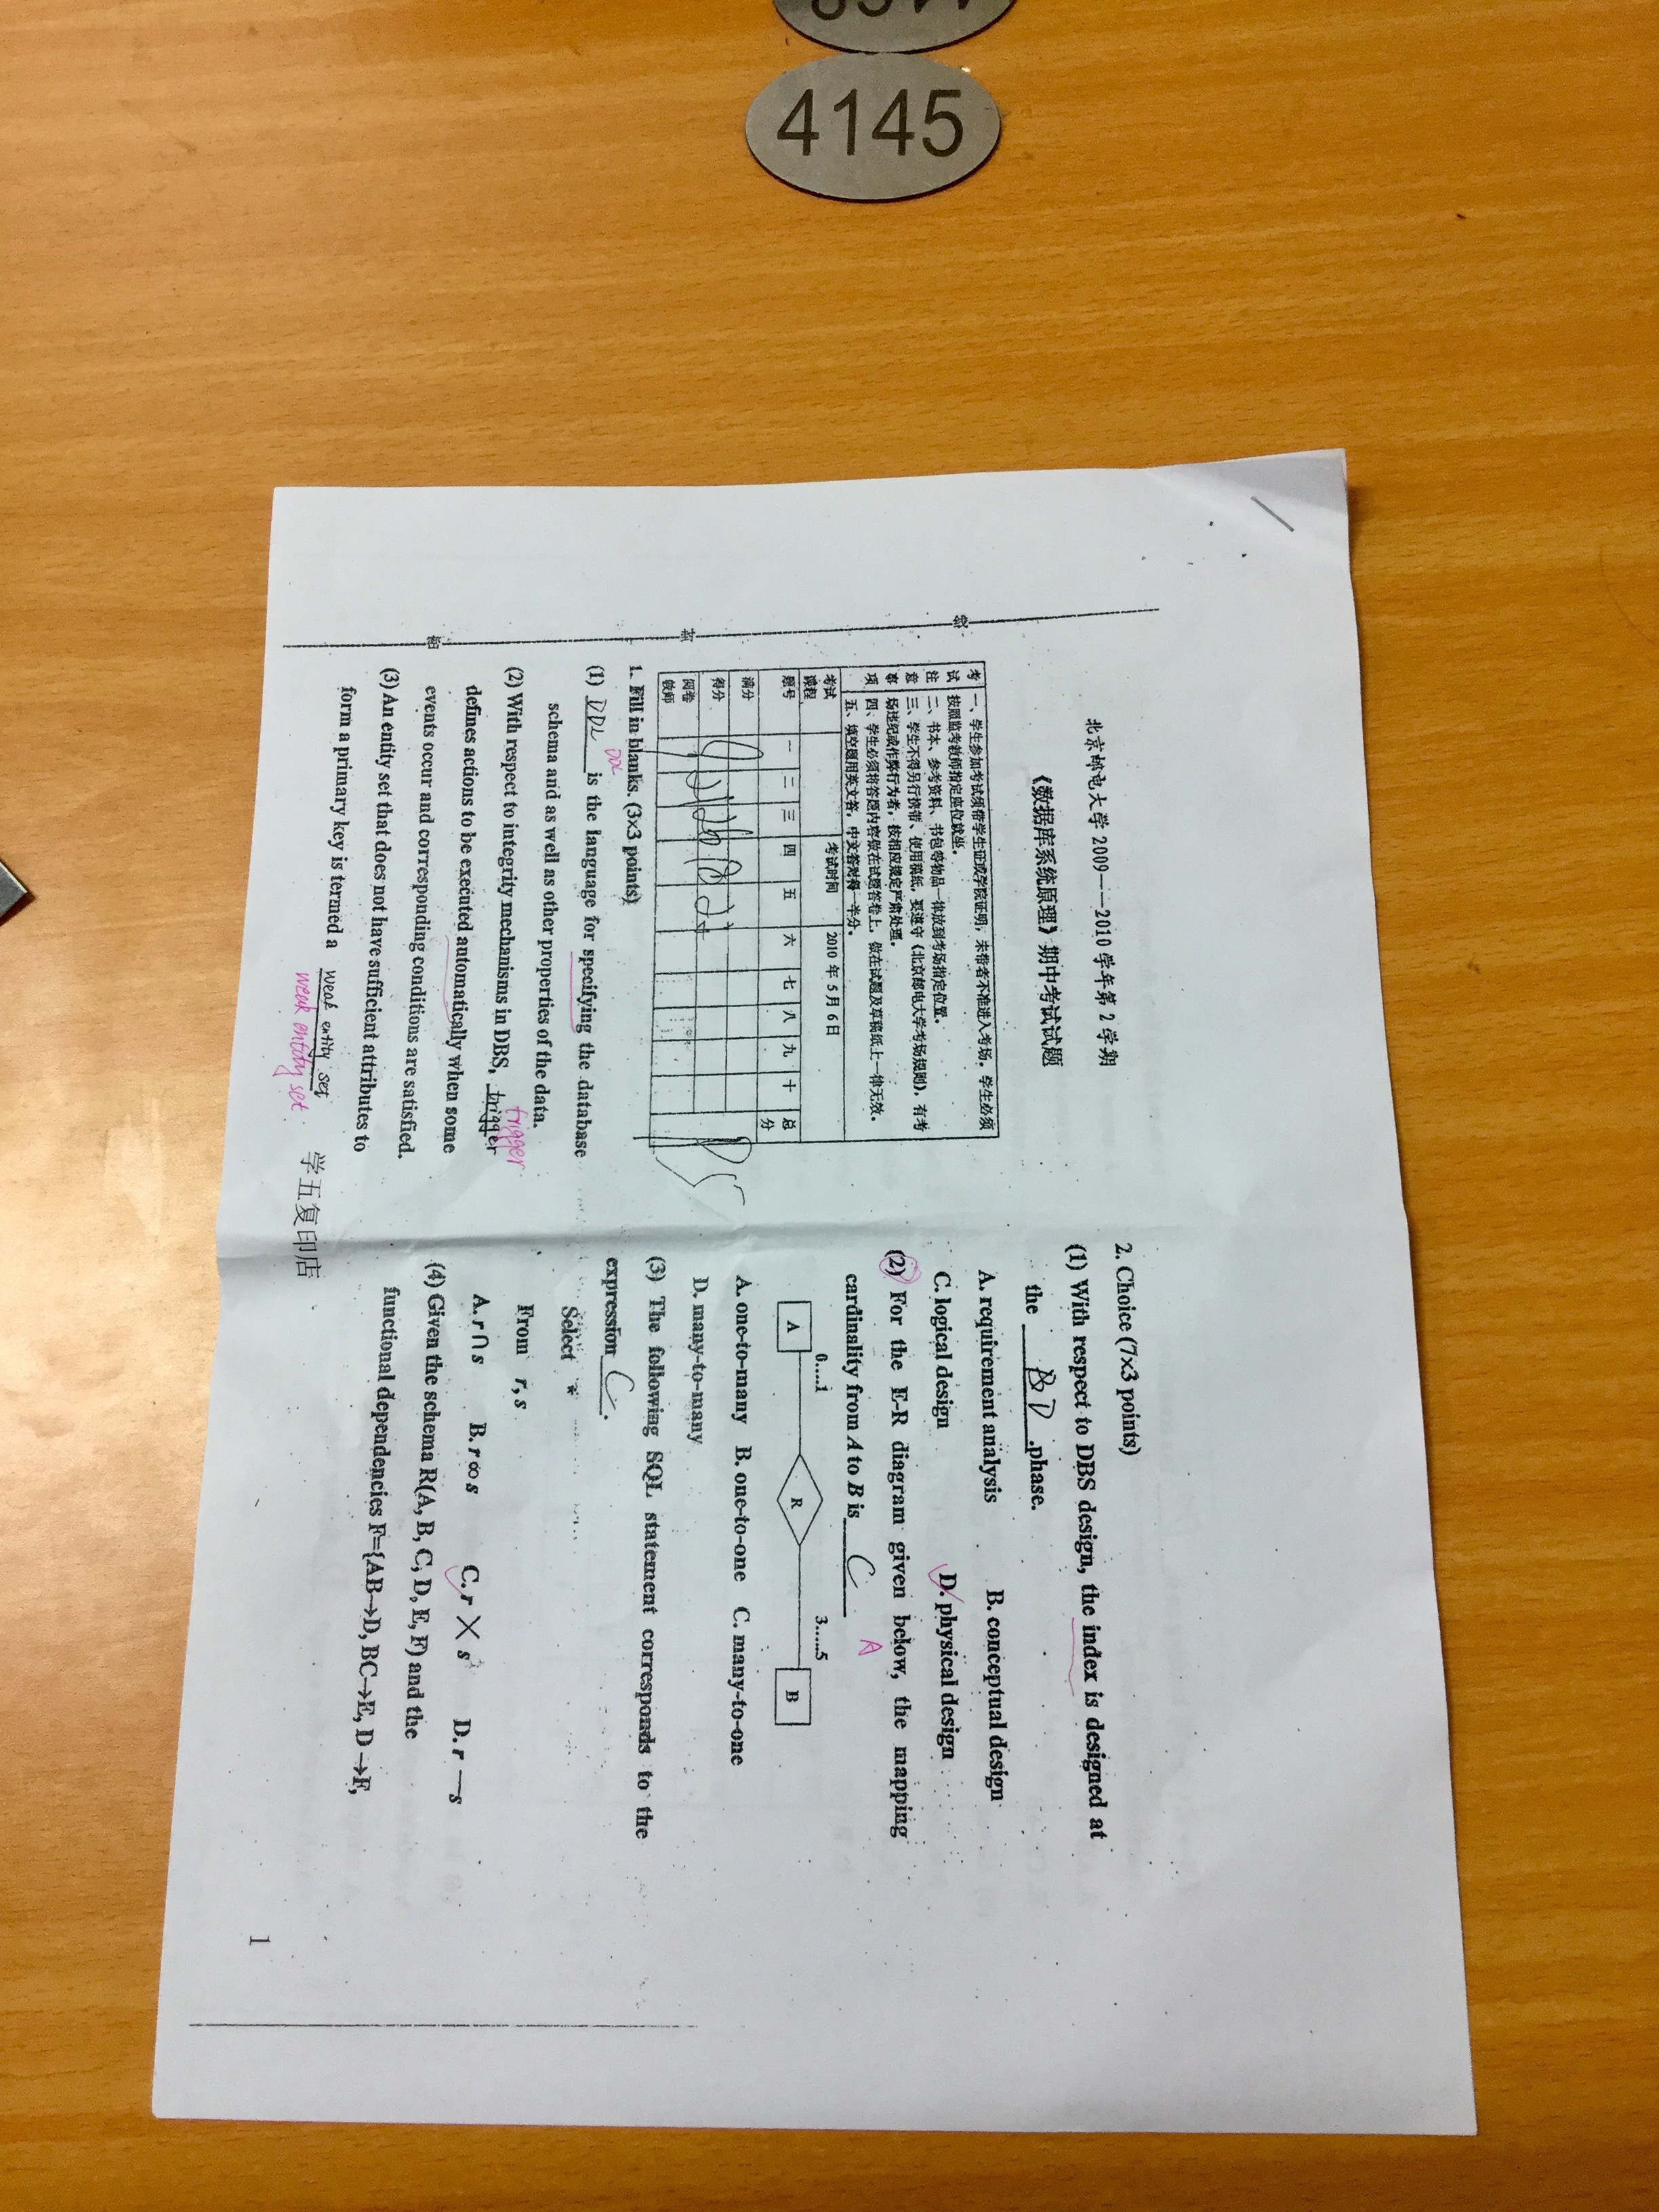 4145
北京邮电大学 2009——2010 学年第 2 学期
《数据库系统原理》期中考试试题
考试注意事项
一、学生参加考试须带学生证或学院证明，未带者不准进入考场。学生必须
按照监考教师指定座位就坐。
二、书本、参考资料、书包等物品一律放到考场指定位置。
三、学生不得另行携带、使用稿纸，要遵守《北京邮电大学考场规则》，有考
场违纪或作弊行为者，按相应规定严肃处理。
四、学生必须将答题内容做在试题答卷上，做在试题及草稿纸上一律无效。
五、填空题用英文答，中文答对得一半分。
考试课程 考试时间 2010 年 5 月 6 日
题号 一 二 三 四 五 六 七 八 九 十 总分
满分
得分
阅卷教师
线
封
密
1. Fill in blanks. (3×3 points)
DDL
(1) DDL is the language for specifying the database
schema and as well as other properties of the data.
trigger
(2) With respect to integrity mechanisms in DBS, trigger
defines actions to be executed automatically when some
events occur and corresponding conditions are satisfied.
(3) An entity set that does not have sufficient attributes to
form a primary key is termed a weak entity set
weak entity set
学五复印店
2. Choice (7×3 points)
(1) With respect to DBS design, the index is designed at
the D .phase.
A. requirement analysis B. conceptual design
C. logical design D. physical design
(2) For the E-R diagram given below, the mapping
cardinality from A to B is C A
0....1 3.....5
A R B
A. one-to-many B. one-to-one C. many-to-one
D. many-to-many
(3) The following SQL statement corresponds to the
expression C .
Select *
From r, s
A. r∩s B. r∞s C. r × s D. r —s
(4) Given the schema R(A, B, C, D, E, F) and the
functional dependencies F={AB→D, BC→E, D →F,
1